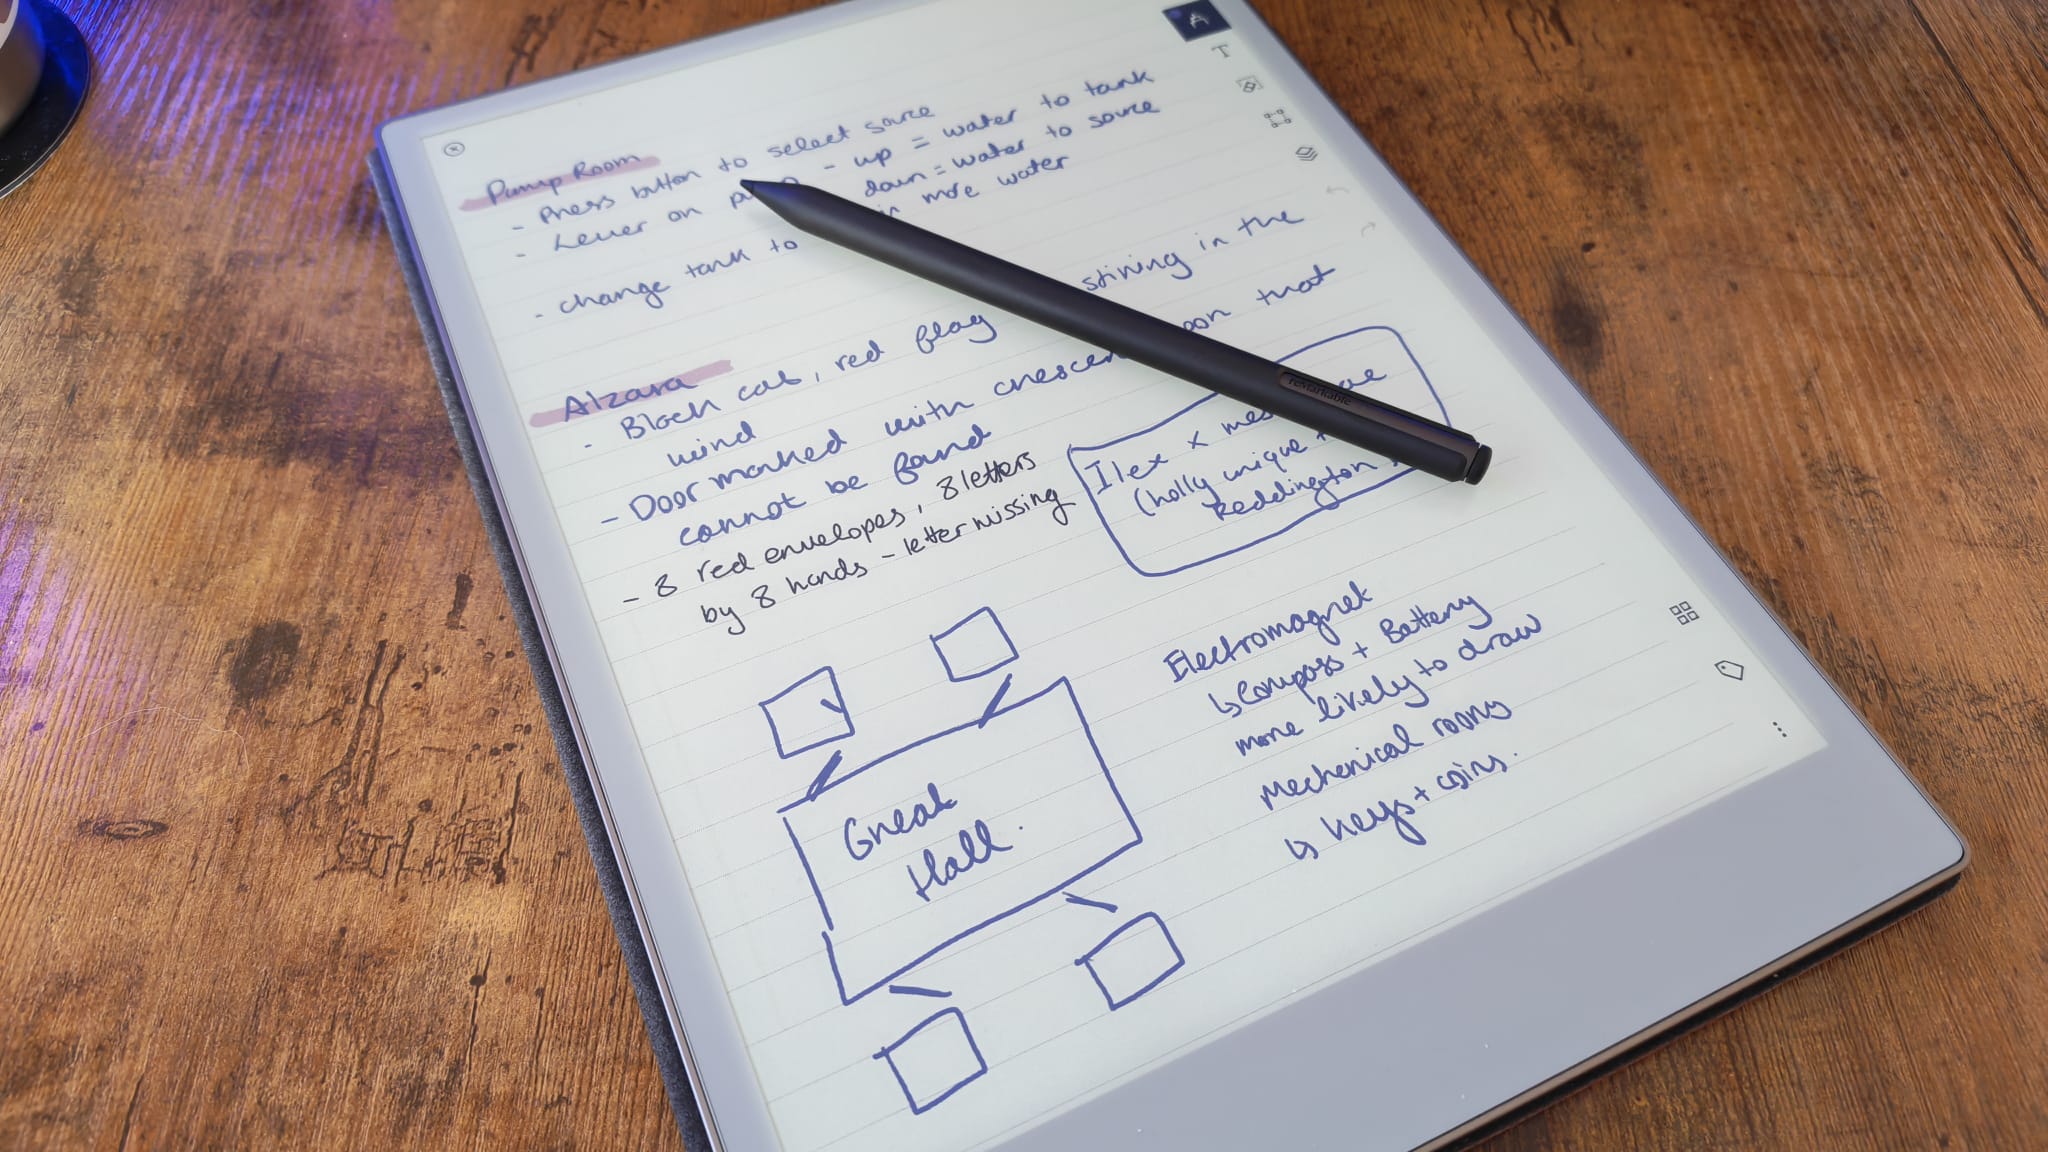 Pump Room
- Press button to select source
- Lever on - up = water to tank
down = water to source
- change tank to more water
Alzara
- Black cat, red flag stirring in the
wind
- Door marked with crescent that
cannot be found
- 8 red envelopes, 8 letters
by 8 hands - letter missing
Ilex x
(holly unique +
Reddington
reMarkable
Great
Hall.
Electromagnet
↳ Compass + Battery
more likely to draw
Mechanical rooms
↳ keys + coins.
T